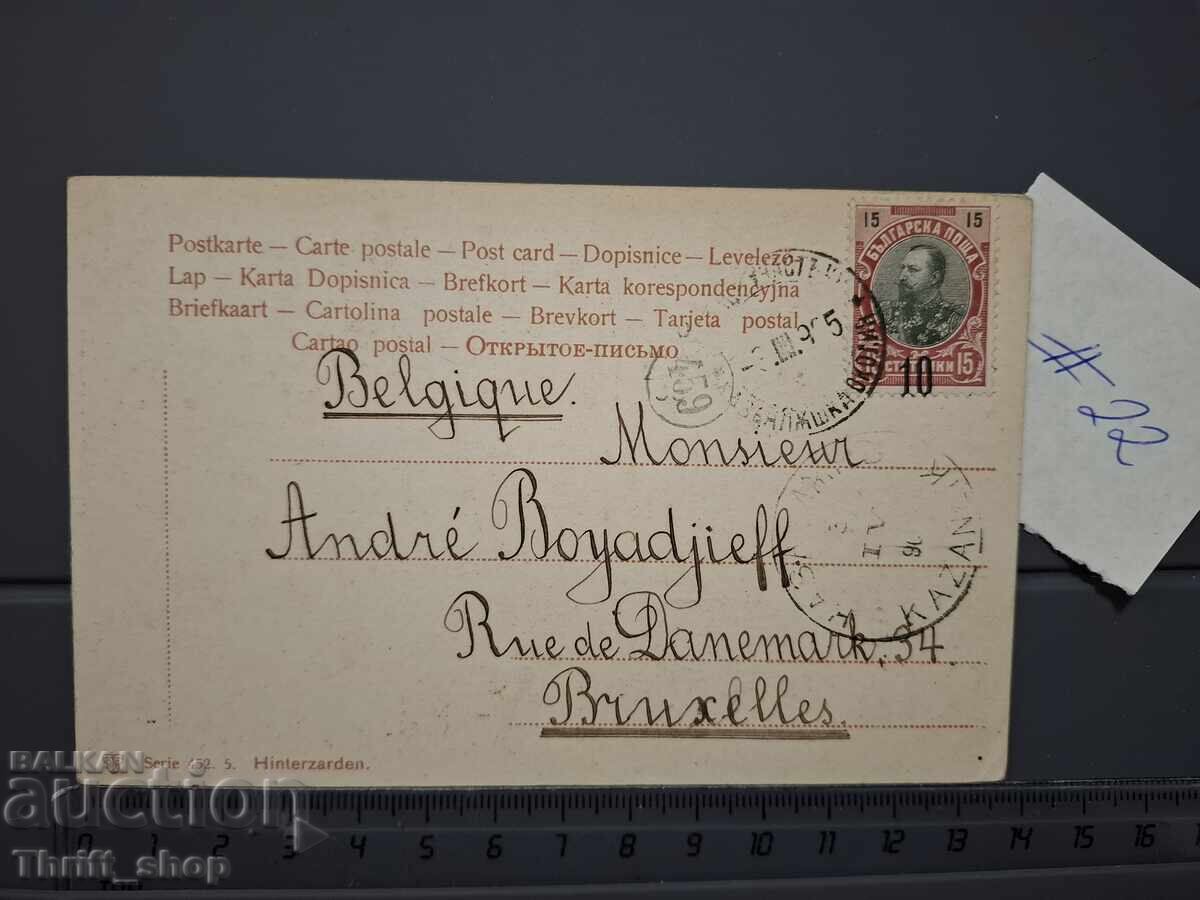 Postkarte – Carte postale – Post card – Dopisnice – Levelezö-
Lap – Karta Dopisnica – Brefkort – Karta korespondencyjna
Briefkaart – Cartolina postale – Brevkort – Tarjeta postal
Cartao postal – Открытое-письмо
15 15
БЪЛГАРСКА ПОЩА
СТОТИНКИ 15
10
459
Belgique.
Monsieur
André Boyadjieff
Rue de Danemark, 34.
Bruxelles.
KAZAN
Serie 452. 5. Hinterzarden.
# 22
BALKAN
auction
Thrift_shop
0 1 2 3 4 5 6 7 8 9 10 11 12 13 14 15 16